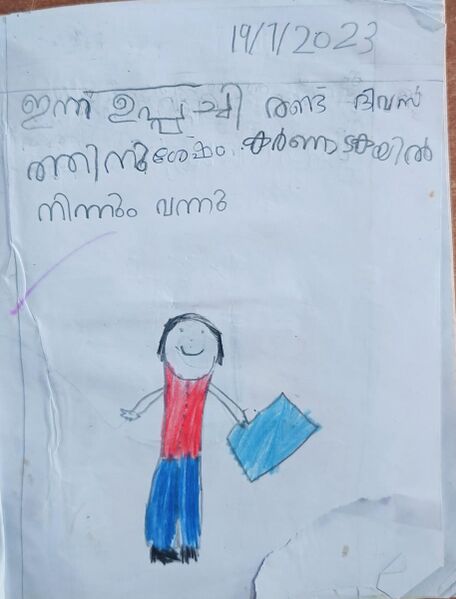 19/7/2023
ഇന്ന് ഉപ്പച്ചി രണ്ട് ദിവസ
ത്തിനുശേഷം കർണാടകയിൽ
നിന്നും വന്നു